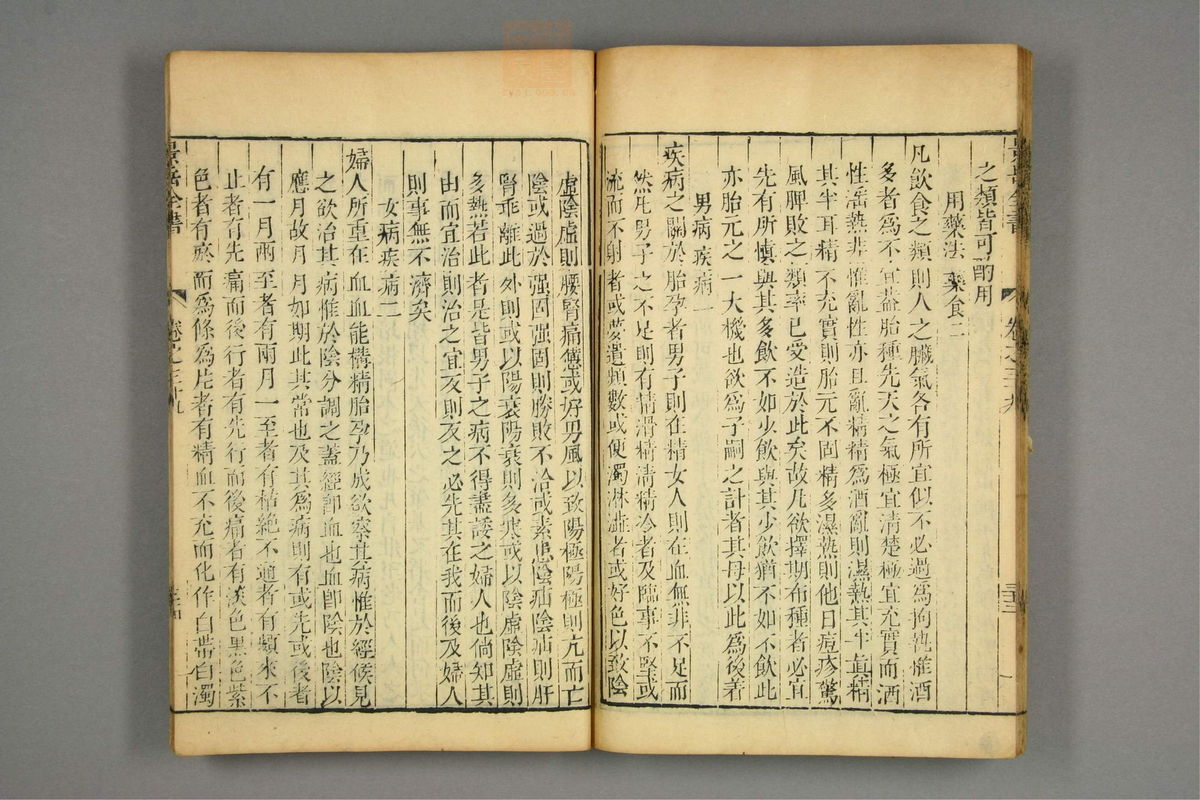 之類皆可酌用
用藥法 藥食二
凡飲食之類則人之臟氣各有所宜似不必過為拘執惟酒
多者為不宜蓋胎種先天之氣極宜清楚極宜充實而酒
性淫熱非惟亂性亦且亂精精為酒亂則濕熱其半真精
其半耳精不充實則胎元不固精多濕熱則他日痘疹驚
風脾敗之類率已受造於此矣故凡欲擇期布種者必宜
先有所慎與其多飲不如少飲與其少飲猶不如不飲此
亦胎元之一大機也欲為子嗣之計者其毋以此為後着
男病 疾病一
疾病之關於胎孕者男子則在精女人則在血無非不足而
然凡男子之不足則有精滑精清精冷者及臨事不堅或
流而不射者或夢遺頻數或便濁淋澁者或好色以致陰
虛陰虛則腰腎痛憊或好男風以致陽極陽極則亢而亡
陰或過於强固强固則勝敗不洽或素患陰疝陰疝則肝
腎乖離此外則或以陽衰陽衰則多寒或以陰虛陰虛則
多熱若此者是皆男子之病不得盡諉之婦人也倘知其
由而宜治則治之宜反則反之必先其在我而後及婦人
則事無不濟矣
女病 疾病二
婦人所重在血血能構精胎孕乃成欲察其病惟於經候見
之欲治其病惟於陰分調之蓋經即血也血即陰也陰以
應月故月月如期此其常也及其為病則有或先或後者
有一月兩至者有兩月一至者有枯絕不通者有頻來不
止者有先痛而後行者有先行而後痛者有淡色黑色紫
色者有瘀而為條為片者有精血不充而化作白帶白濁
景岳全書
卷之三十九
三十三
景岳全書
卷之三十九
三十四